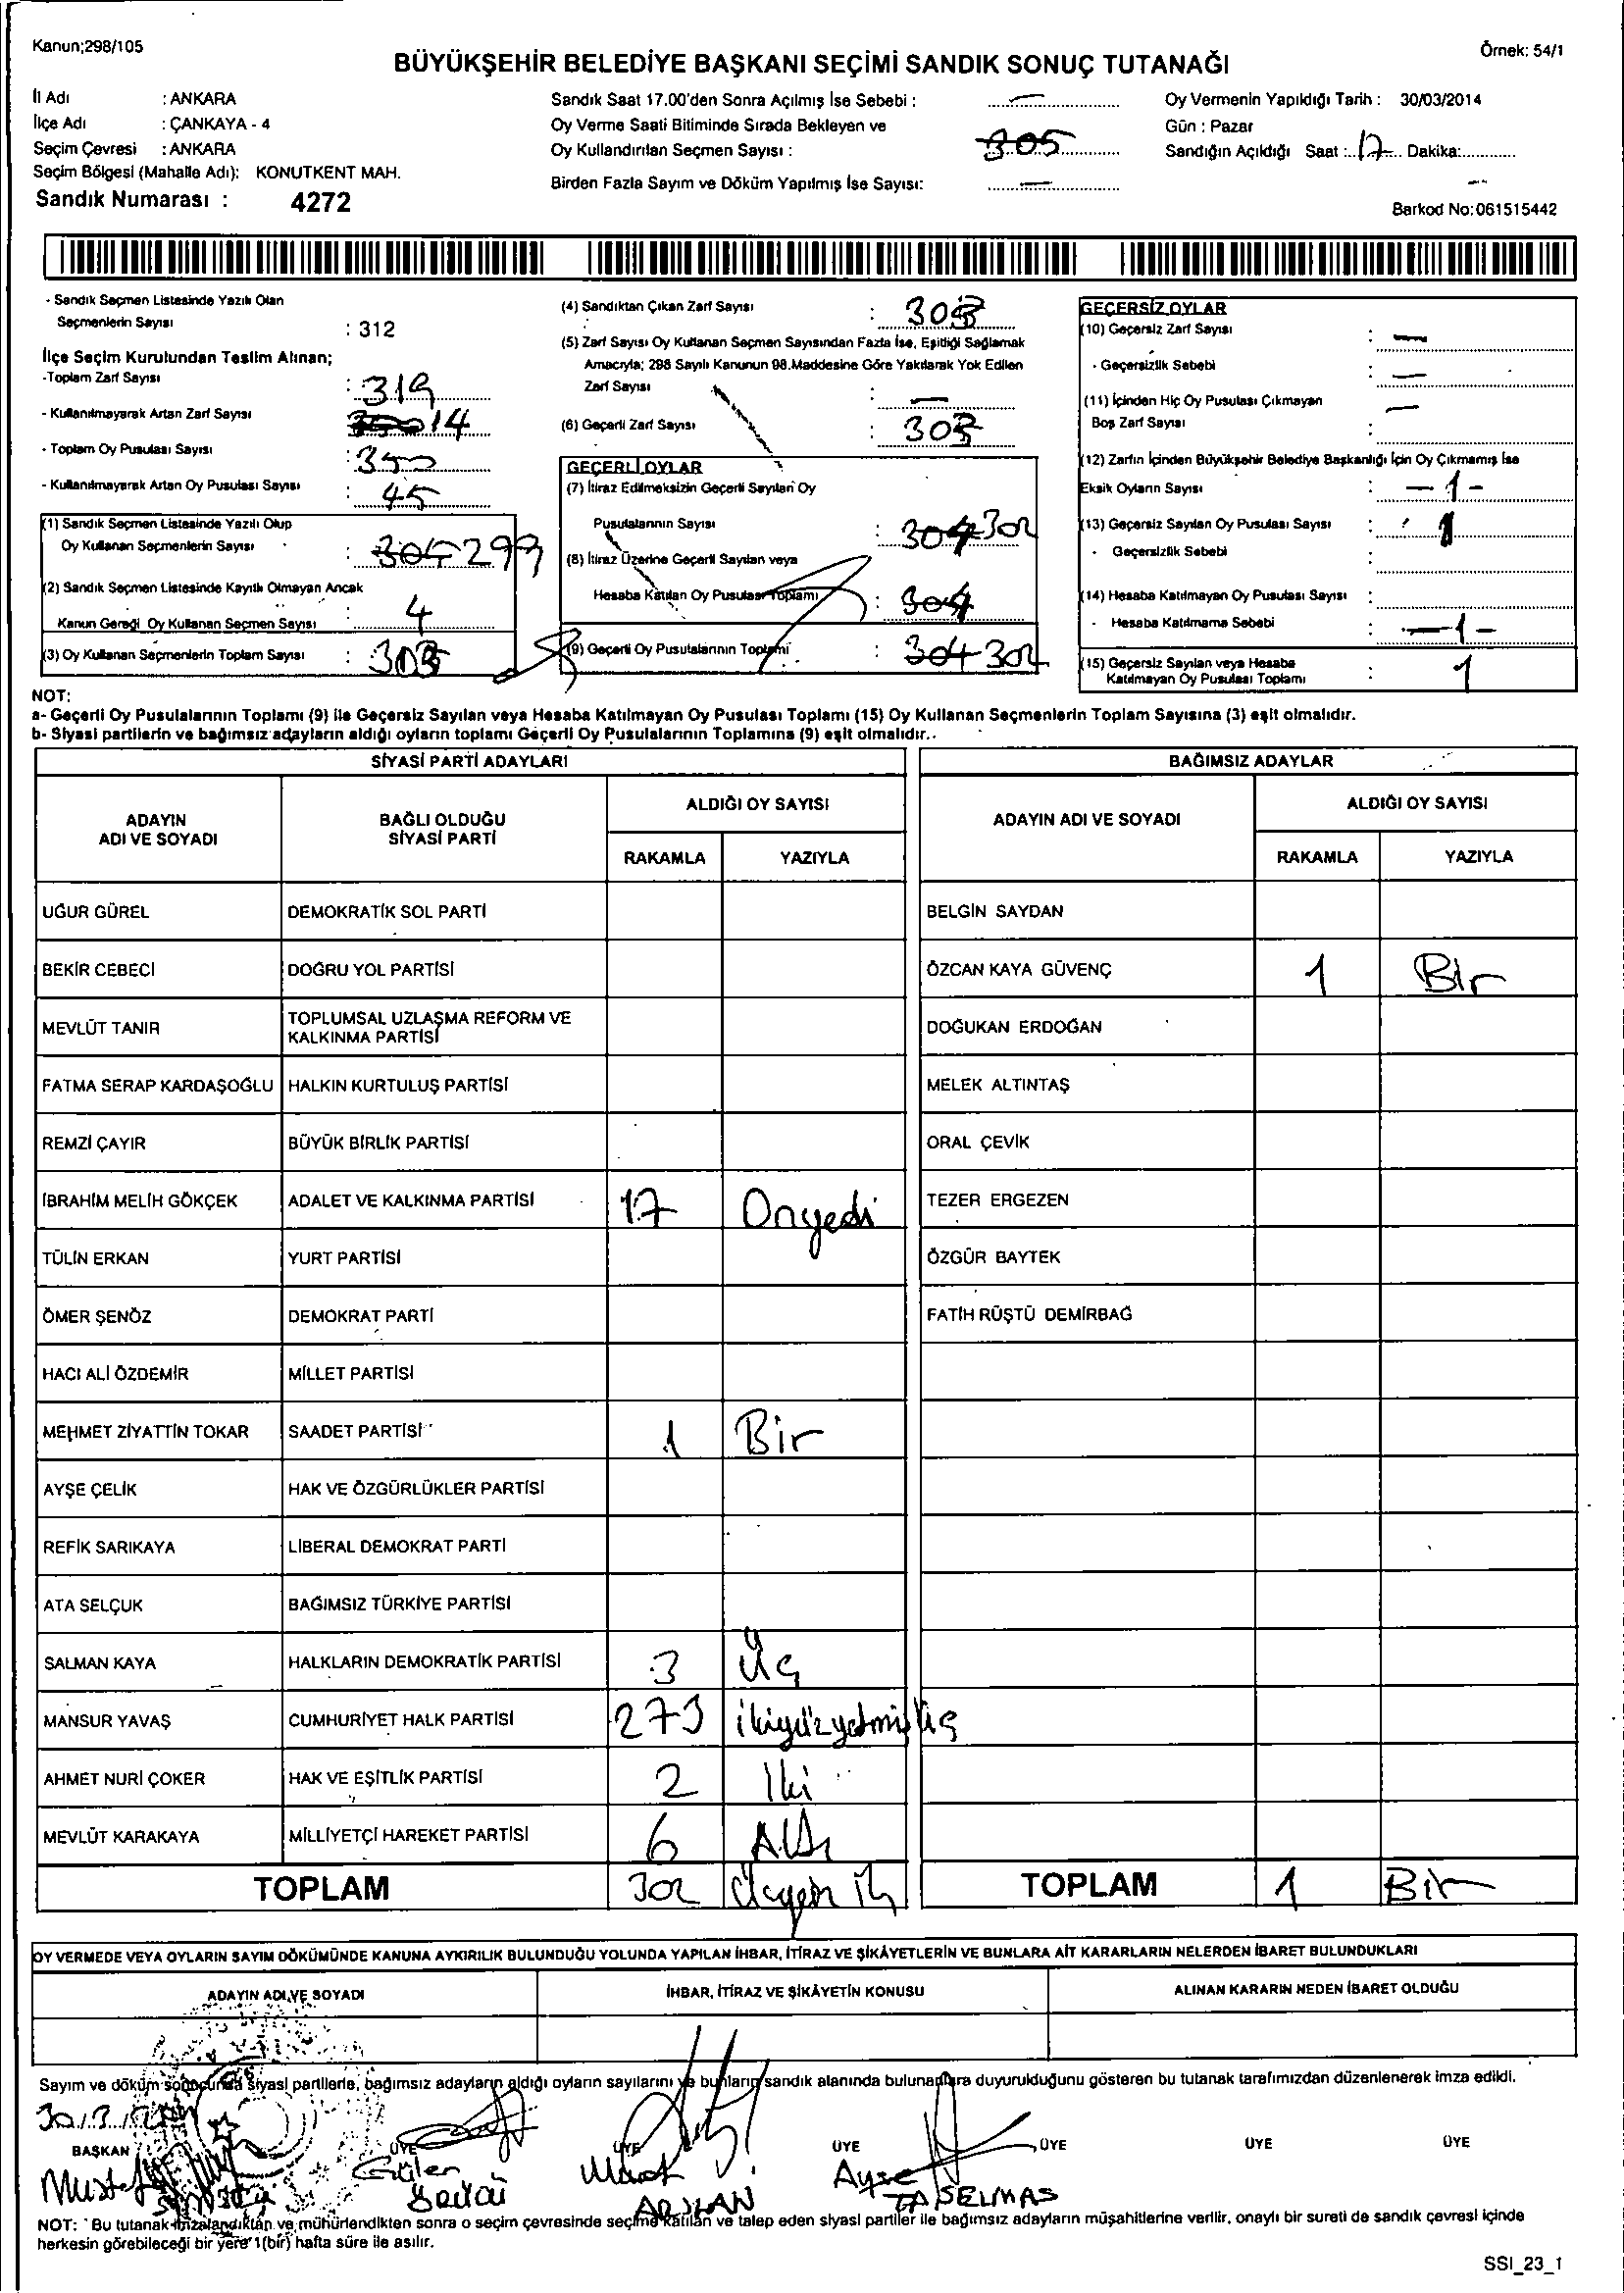 Kanun;298/105
Örnek: 54/1
BÜYÜKŞEHİR BELEDİYE BAŞKANI SEÇİMİ SANDIK SONUÇ TUTANAĞI
İl Adı : ANKARA
İlçe Adı : ÇANKAYA - 4
Seçim Çevresi : ANKARA
Seçim Bölgesi (Mahalle Adı): KONUTKENT MAH.
Sandık Numarası : 4272
Sandık Saat 17.00'den Sonra Açılmış İse Sebebi : —
Oy Verme Saati Bitiminde Sırada Bekleyen ve
Oy Kullandırılan Seçmen Sayısı : 305
Birden Fazla Sayım ve Döküm Yapılmış İse Sayısı: —
Oy Vermenin Yapıldığı Tarih : 30/03/2014
Gün : Pazar
Sandığın Açıldığı Saat :..17... Dakika:............
Barkod No:061515442
- Sandık Seçmen Listesinde Yazılı Olan
Seçmenlerin Sayısı : 312
İlçe Seçim Kurulundan Teslim Alınan;
-Toplam Zarf Sayısı : 319
- Kullanılmayarak Artan Zarf Sayısı 14
- Toplam Oy Pusulası Sayısı : 350
- Kullanılmayarak Artan Oy Pusulası Sayısı : 45
(1) Sandık Seçmen Listesinde Yazılı Olup
Oy Kullanan Seçmenlerin Sayısı : 299
(2) Sandık Seçmen Listesinde Kayıtlı Olmayan Ancak
Kanun Gereği Oy Kullanan Seçmen Sayısı : 4
(3) Oy Kullanan Seçmenlerin Toplam Sayısı : 303
(4) Sandıktan Çıkan Zarf Sayısı : 303
(5) Zarf Sayısı Oy Kullanan Seçmen Sayısından Fazla İse, Eşitliği Sağlamak
Amacıyla; 298 Sayılı Kanunun 98.Maddesine Göre Yakılarak Yok Edilen
Zarf Sayısı : —
(6) Geçerli Zarf Sayısı : 303
GEÇERLİ OYLAR
(7) İtiraz Edilmeksizin Geçerli Sayılan Oy
Pusulalarının Sayısı : 304 302
(8) İtiraz Üzerine Geçerli Sayılan veya
Hesaba Katılan Oy Pusulası Toplamı : 304
(9) Geçerli Oy Pusulalarının Toplamı : 304 302
GEÇERSİZ OYLAR
(10) Geçersiz Zarf Sayısı : —
- Geçersizlik Sebebi : —
(11) İçinden Hiç Oy Pusulası Çıkmayan —
Boş Zarf Sayısı :
(12) Zarfın İçinden Büyükşehir Belediye Başkanlığı İçin Oy Çıkmamış İse
Eksik Oyların Sayısı : — 1 -
(13) Geçersiz Sayılan Oy Pusulası Sayısı :
- Geçersizlik Sebebi :
(14) Hesaba Katılmayan Oy Pusulası Sayısı :
- Hesaba Katılmama Sebebi : — 1 -
(15) Geçersiz Sayılan veya Hesaba
Katılmayan Oy Pusulası Toplamı : 1
NOT:
a- Geçerli Oy Pusulalarının Toplamı (9) ile Geçersiz Sayılan veya Hesaba Katılmayan Oy Pusulası Toplamı (15) Oy Kullanan Seçmenlerin Toplam Sayısına (3) eşit olmalıdır.
b- Siyasi partilerin ve bağımsız adayların aldığı oyların toplamı Geçerli Oy Pusulalarının Toplamına (9) eşit olmalıdır..
SİYASİ PARTİ ADAYLARI
ADAYIN ADI VE SOYADI BAĞLI OLDUĞU SİYASİ PARTİ ALDIĞI OY SAYISI
RAKAMLA YAZIYLA
UĞUR GÜREL DEMOKRATİK SOL PARTİ
BEKİR CEBECİ DOĞRU YOL PARTİSİ
MEVLÜT TANIR TOPLUMSAL UZLAŞMA REFORM VE KALKINMA PARTİSİ
FATMA SERAP KARDAŞOĞLU HALKIN KURTULUŞ PARTİSİ
REMZİ ÇAYIR BÜYÜK BİRLİK PARTİSİ
İBRAHİM MELİH GÖKÇEK ADALET VE KALKINMA PARTİSİ 17 Onyedi
TÜLİN ERKAN YURT PARTİSİ
ÖMER ŞENÖZ DEMOKRAT PARTİ
HACI ALİ ÖZDEMİR MİLLET PARTİSİ
MEHMET ZİYATTİN TOKAR SAADET PARTİSİ 1 Bir
AYŞE ÇELİK HAK VE ÖZGÜRLÜKLER PARTİSİ
REFİK SARIKAYA LİBERAL DEMOKRAT PARTİ
ATA SELÇUK BAĞIMSIZ TÜRKİYE PARTİSİ
SALMAN KAYA HALKLARIN DEMOKRATİK PARTİSİ 3 Üç
MANSUR YAVAŞ CUMHURİYET HALK PARTİSİ 273 ikiyüzyetmişüç
AHMET NURİ ÇOKER HAK VE EŞİTLİK PARTİSİ 2 İki
MEVLÜT KARAKAYA MİLLİYETÇİ HAREKET PARTİSİ 6 Altı
TOPLAM 302
BAĞIMSIZ ADAYLAR
ADAYIN ADI VE SOYADI ALDIĞI OY SAYISI
RAKAMLA YAZIYLA
BELGİN SAYDAN
ÖZCAN KAYA GÜVENÇ 1 Bir
DOĞUKAN ERDOĞAN
MELEK ALTINTAŞ
ORAL ÇEVİK
TEZER ERGEZEN
ÖZGÜR BAYTEK
FATİH RÜŞTÜ DEMİRBAĞ
TOPLAM 1 Bir
OY VERMEDE VEYA OYLARIN SAYIM DÖKÜMÜNDE KANUNA AYKIRILIK BULUNDUĞU YOLUNDA YAPILAN İHBAR, İTİRAZ VE ŞİKÂYETLERİN VE BUNLARA AİT KARARLARIN NELERDEN İBARET BULUNDUKLARI
ADAYIN ADI VE SOYADI İHBAR, İTİRAZ VE ŞİKÂYETİN KONUSU ALINAN KARARIN NEDEN İBARET OLDUĞU
Sayım ve döküm sonucunda siyasi partilerle, bağımsız adayların aldığı oyların sayılarını ve bunların sandık alanında bulunanlara duyurulduğunu gösteren bu tutanak tarafımızdan düzenlenerek imza edildi.
BAŞKAN ÜYE ÜYE ÜYE ÜYE ÜYE ÜYE
Güler Murat Ayşe
ARSLAN TAŞELMAS
NOT: Bu tutanak imzalandıktan ve mühürlendikten sonra o seçim çevresinde seçime katılan ve talep eden siyasi partiler ile bağımsız adayların müşahitlerine verilir, onaylı bir sureti de sandık çevresi içinde
herkesin görebileceği bir yere 1(bir) hafta süre ile asılır.
SSI_23_1